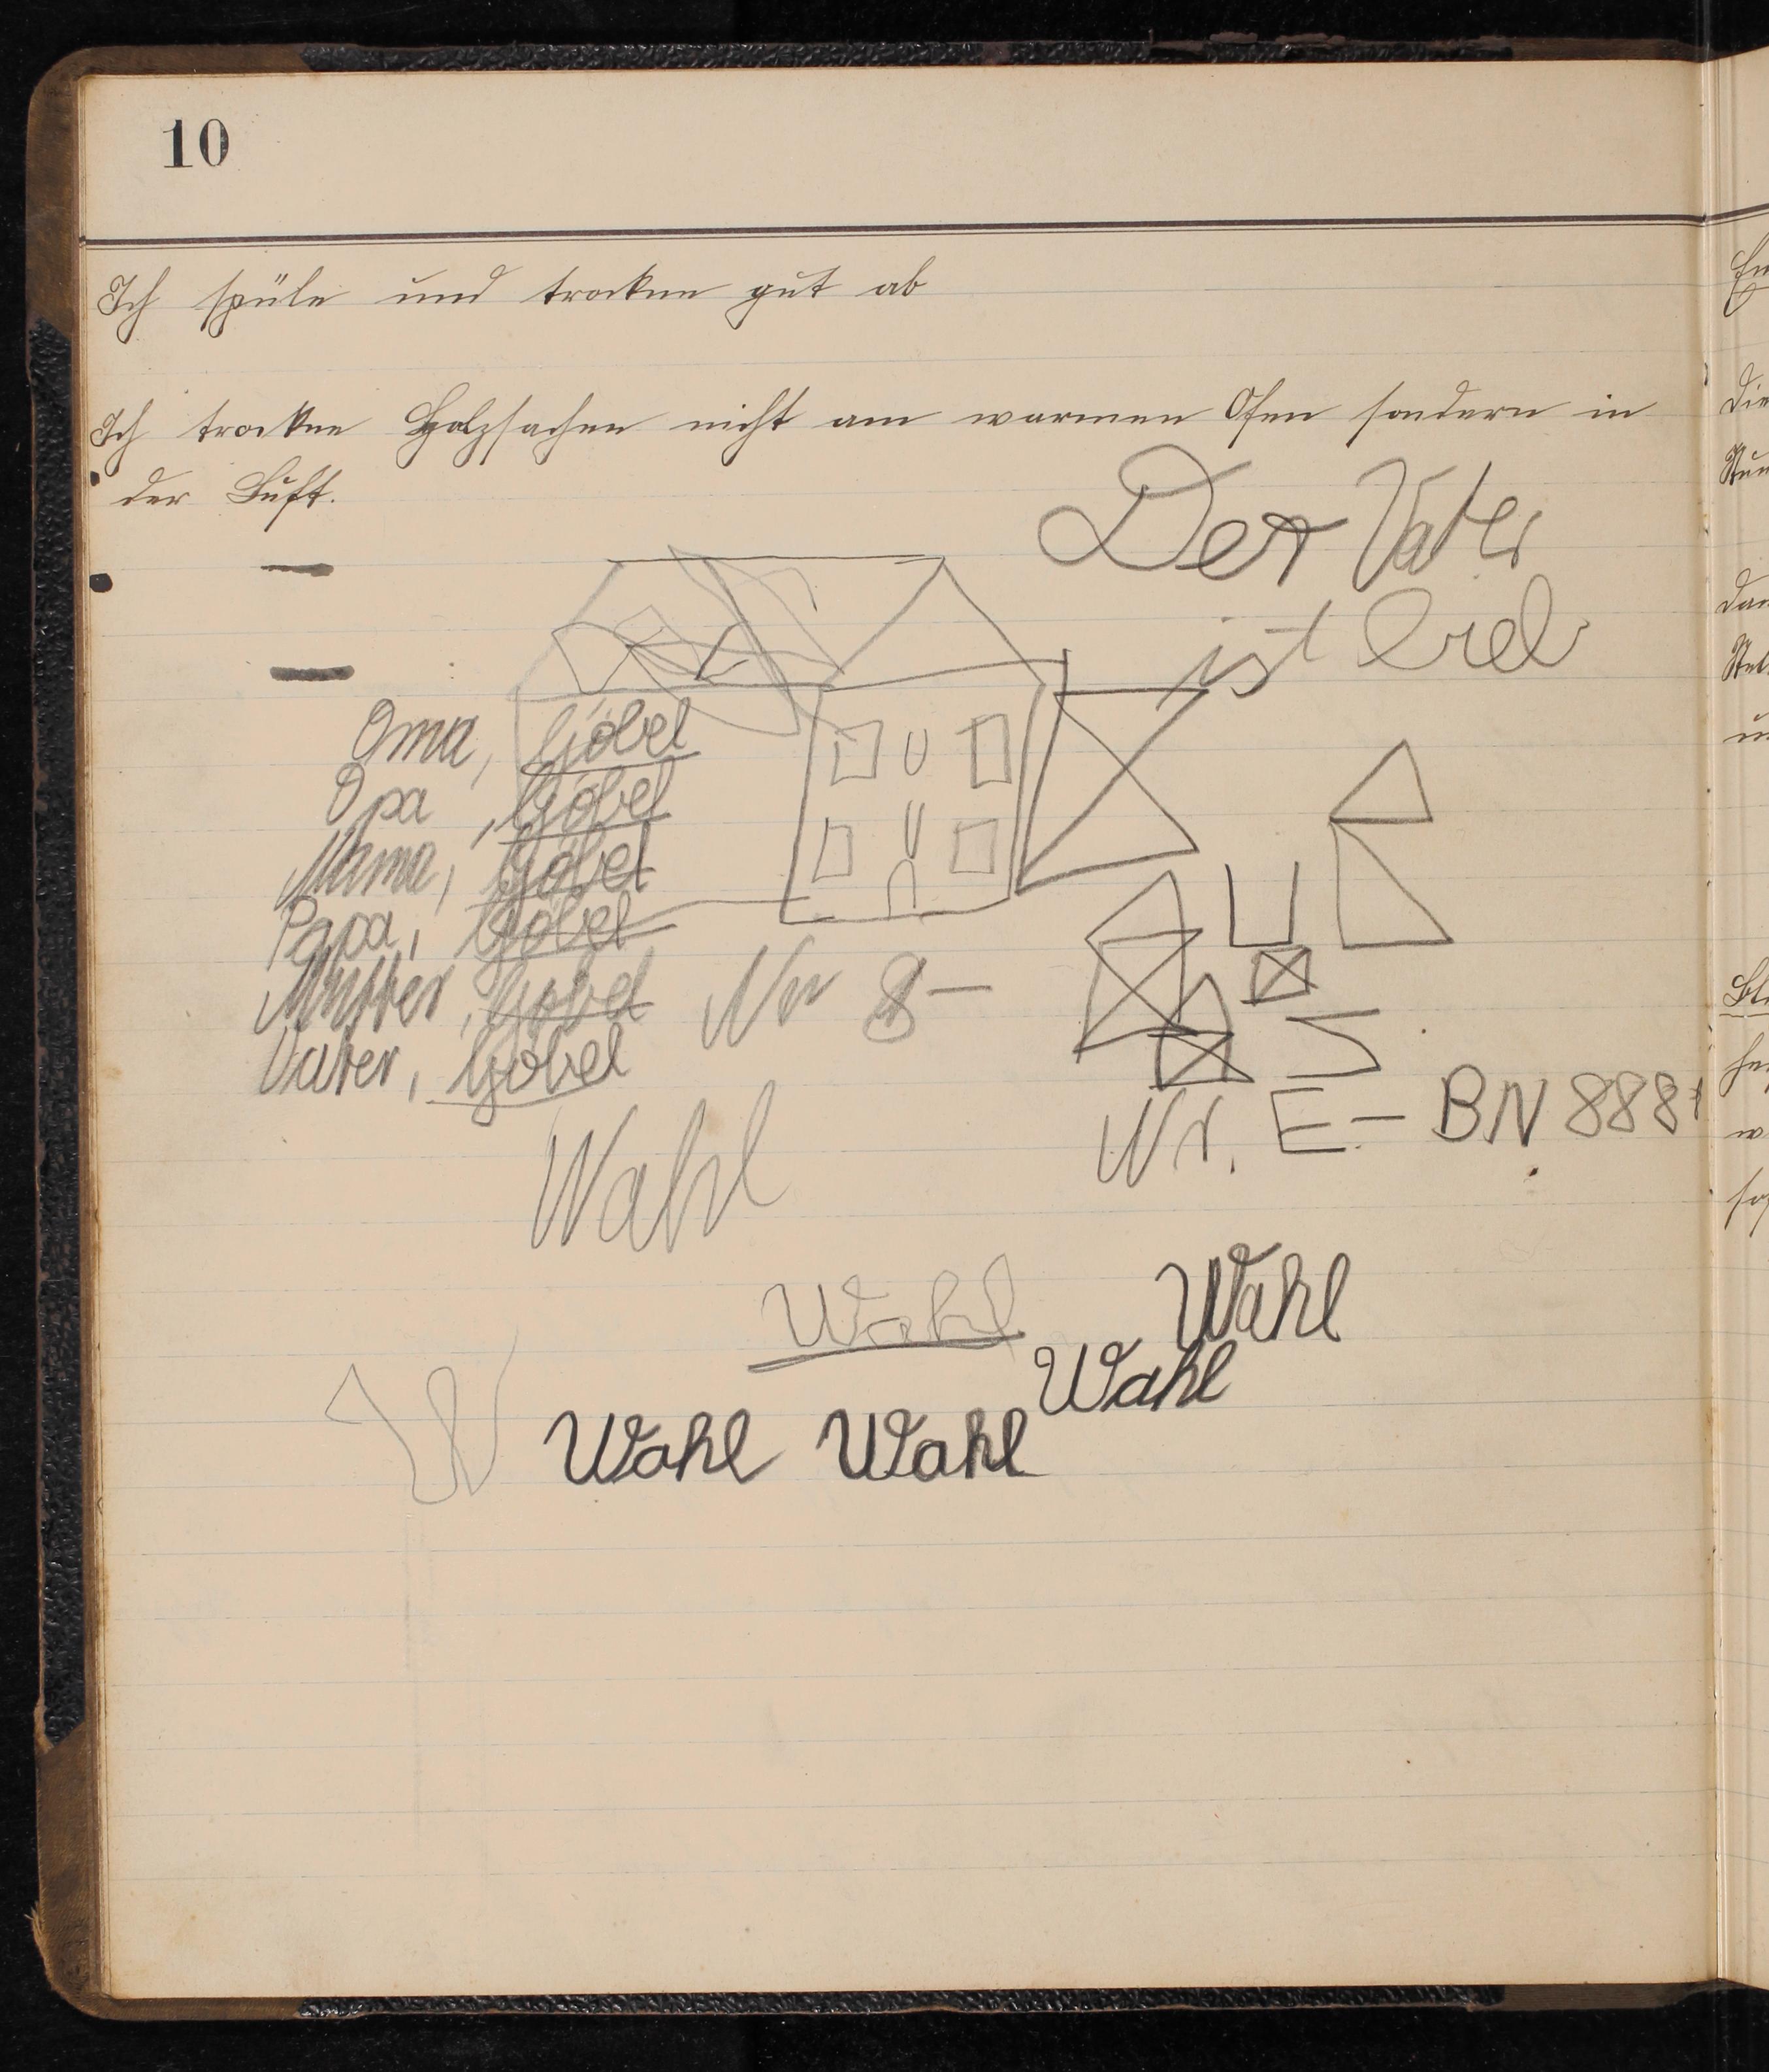 10
Ich spüle und trockne gut ab
Ich trockne Holzsachen nicht am warmen Ofen sondern in
der Luft.
Der Vater
ist
Oma, Göbel
Opa, Göbel
Mama, Göbel
Papa, Göbel
Mutter, Göbel
Vater, Göbel
Nr 8-
Nr. E - BN 888
Wahl
Wahl
Wahl
Wahl
W Wahl Wahl